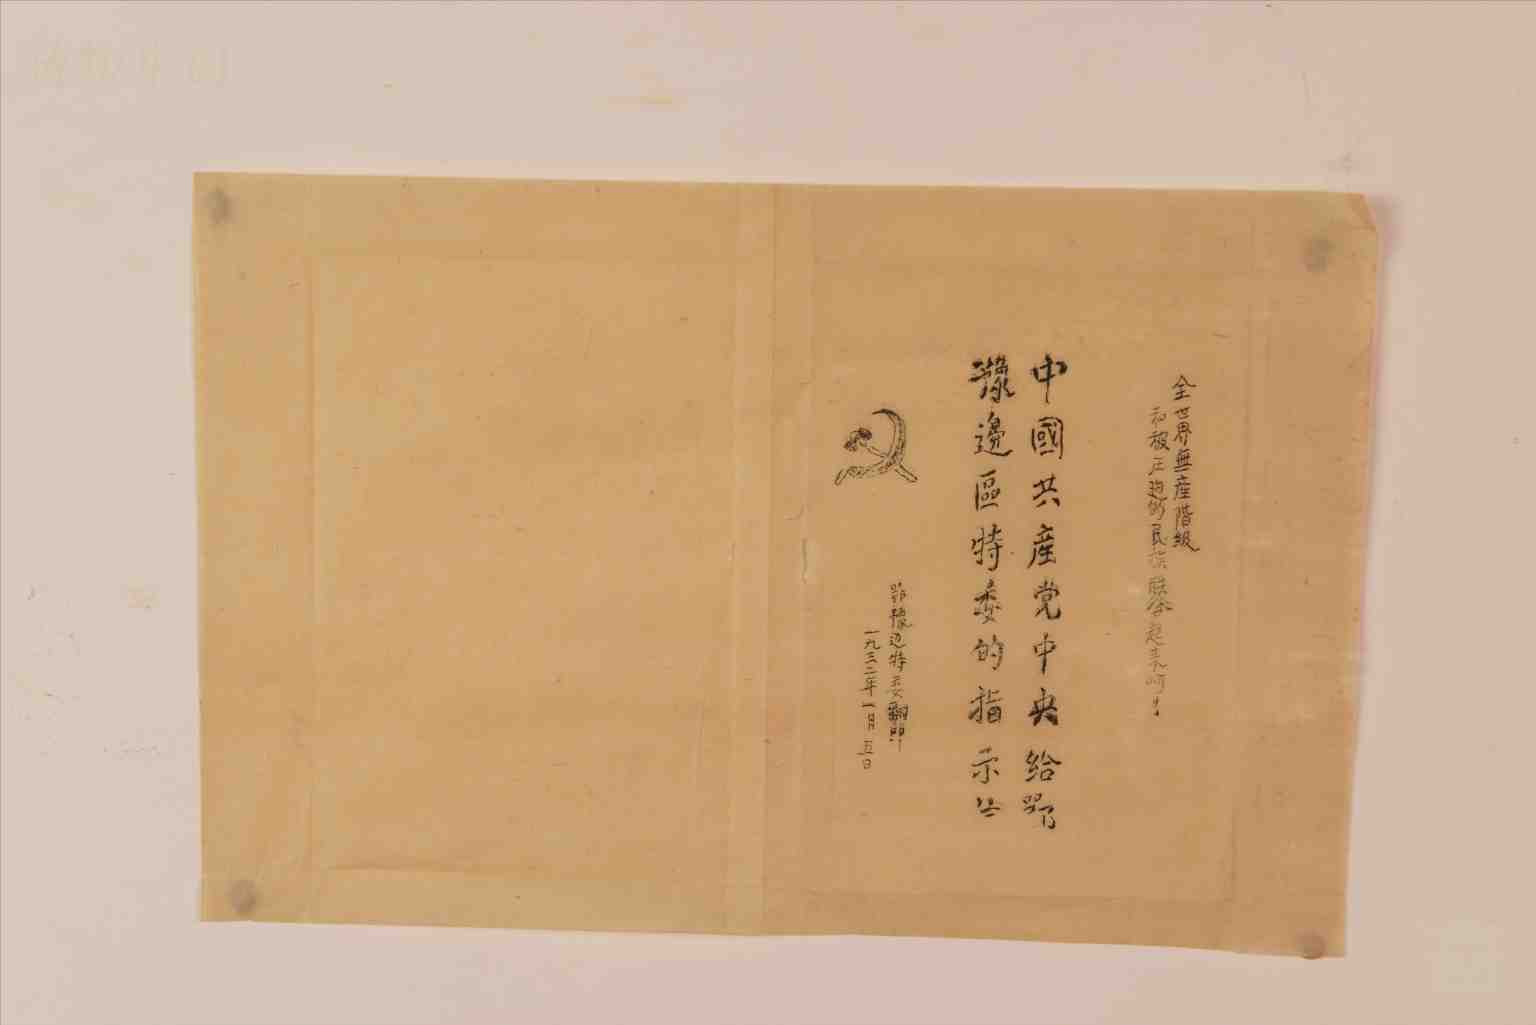 全世界無産階級
和被压迫的民族联合起来呵！
中國共産党中央給鄂
豫邊區特委的指示
鄂豫边特委翻印
一九三二年一月五日